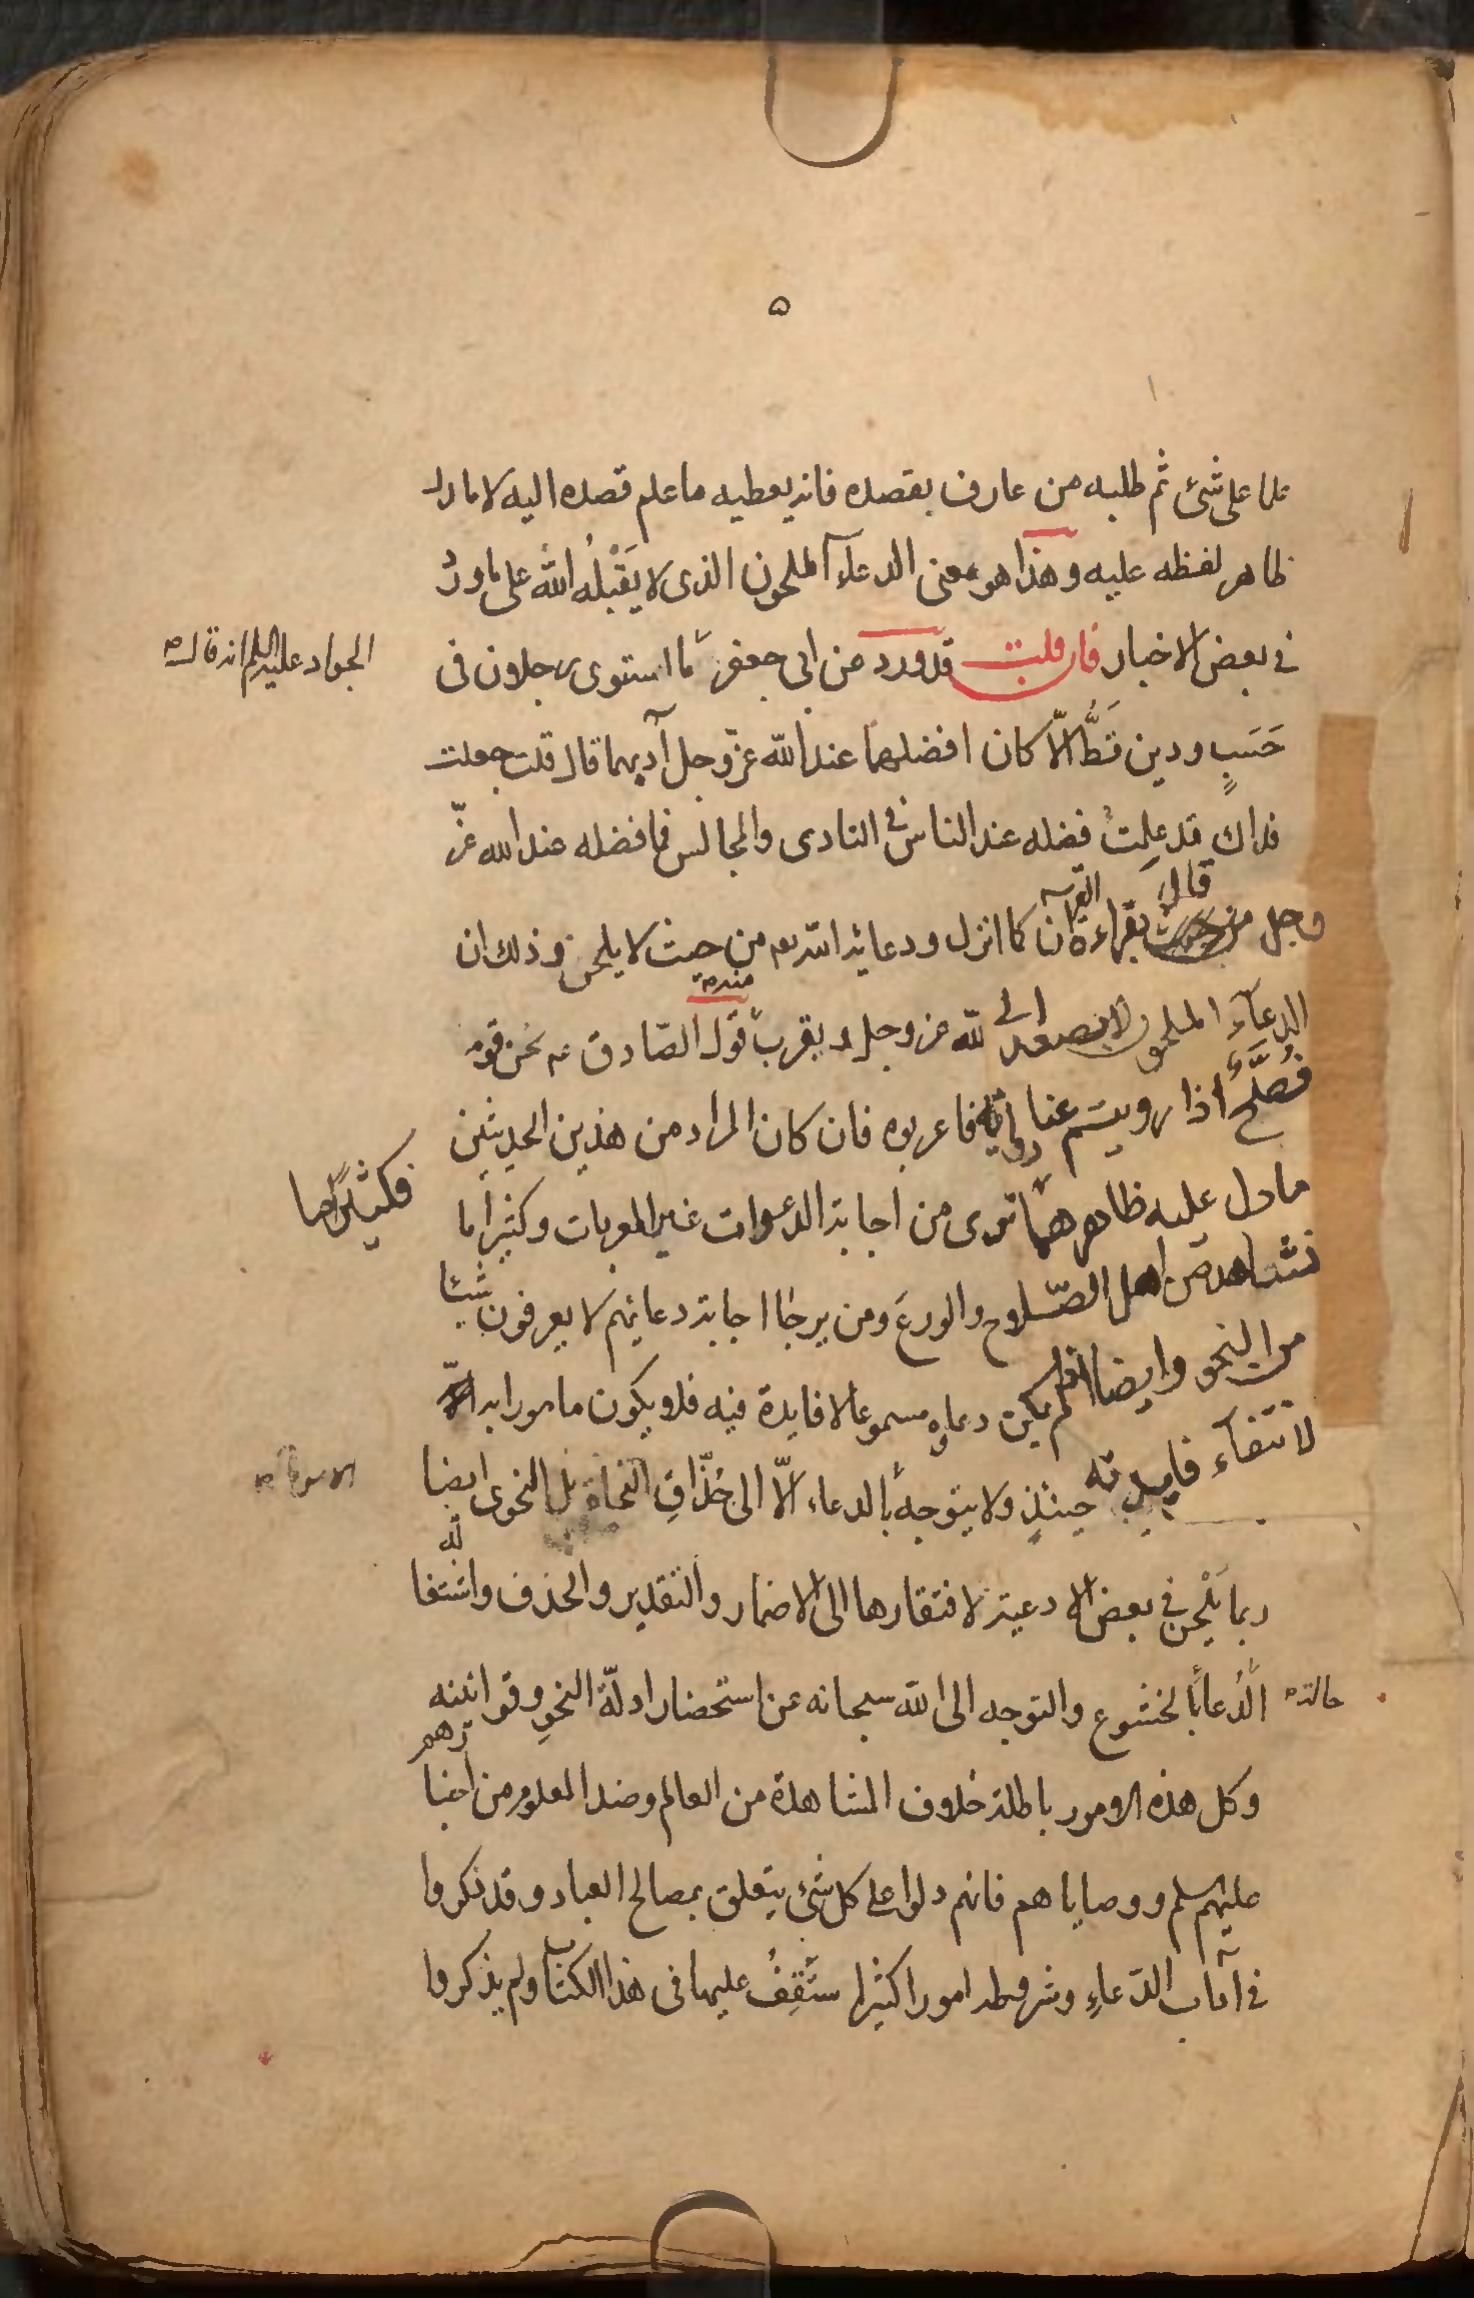 ۵
علما على شئ ثم طلبه من عارف بقصده فانه يعطيه ما علم قصده اليه لا ما دل
ظاهر لفظه عليه وهذا هو معنى الدعاء الملحون الذى لا يَقْبَلُه الله على ما ورد
فى بعض الاخبار فان قلت قد ورد عن ابى جعفر ما استوى رجلان فى
الجواد عليه السلم انه قال
حَسَبٍ ودين قَطُّ الّا كان افضلهما عند الله عزّ وجل آدبهما قال قلت جعلت
فداك قد علمتُ فضله عند الناس فى النادى والمجالس فما فضله عند الله عزّ
قال
وجل بقراءة القرآن كما انزل ودعائه الله من حيث لا يلحن وذلك ان
منه
الدعاء الملحون لا يصعد الى الله عز وجل ويقرب قول الصّادق نحن قوم
فُصَحَاء اذا رويتم عنا رواية فاعربوه فان كان المراد من هذين الحديثين
ما دل عليه ظاهرهما نرى من اجابة الدعوات غير المعربات وكثيرا ما
فكثيرا ما
نشاهد من اهل الصّلاح والورع ومن يرجا اجابة دعائهم لا يعرفون شيئا
من النحو وايضا لم يكن دعاءه مسموعا لا فايدة فيه فلا يكون مامورا به
لانتفاء فايدته حينئذ ولا يتوجه بالدعاء الّا الى حُذّاقِ النحاة بل النحوى ايضا
ربما يَلْحن فى بعض الادعية لافتقارها الى الاضمار والتقدير والحذف واشتغاله
حالة الدُعاء بالخشوع والتوجه الى الله سبحانه عن استحضار ادلّة النحو وقوانينه
وكل هذه الامور باطلة خلاف المشاهدة من العالم وضد المعلوم من اخبارهم
عليهم السلم ووصاياهم فانهم دلوا على كل شئ يتعلق بمصالح العباد وقد ذكروا
فى آداب الدّعاءِ وشروطه امورا كثيرا ستَقِفُ عليها فى هذا الكتاب ولم يذكروا